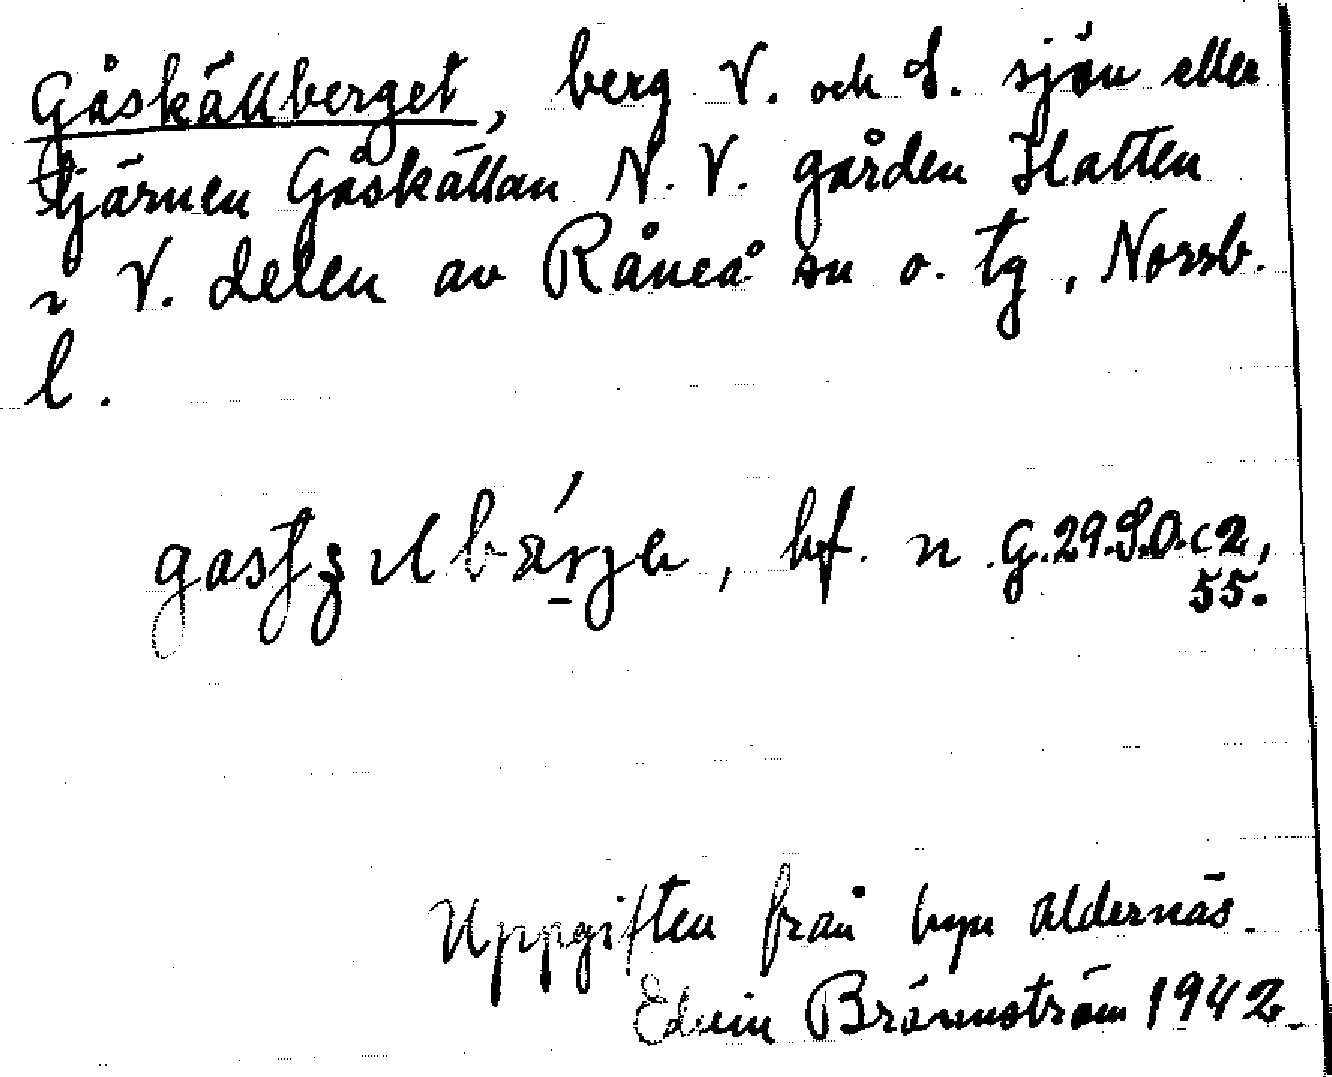 Gåskällberget, berg V. och S. sjön eller
tjärnen Gåskällan N. V. gården Hatten
i V. delen av Råneå sn o. tg, Norrb.
l.
bf. n G.29.S.O.c2,
55.
Uppgiften från byn Aldernäs.
Edvin Brännström 1942.